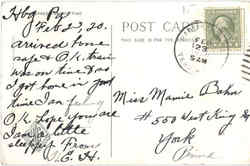 Hbg Pa
Feb 23, 20.
POST CARD
arrived home
safe & O.K. train
was on time & we
I got home in good
time I am feeling
O.K. hope you are
I am a little
sleepy from
C. H.
FEB
23
5 AM
Miss Mamie Bahn
# 550 West King St
York
Penna